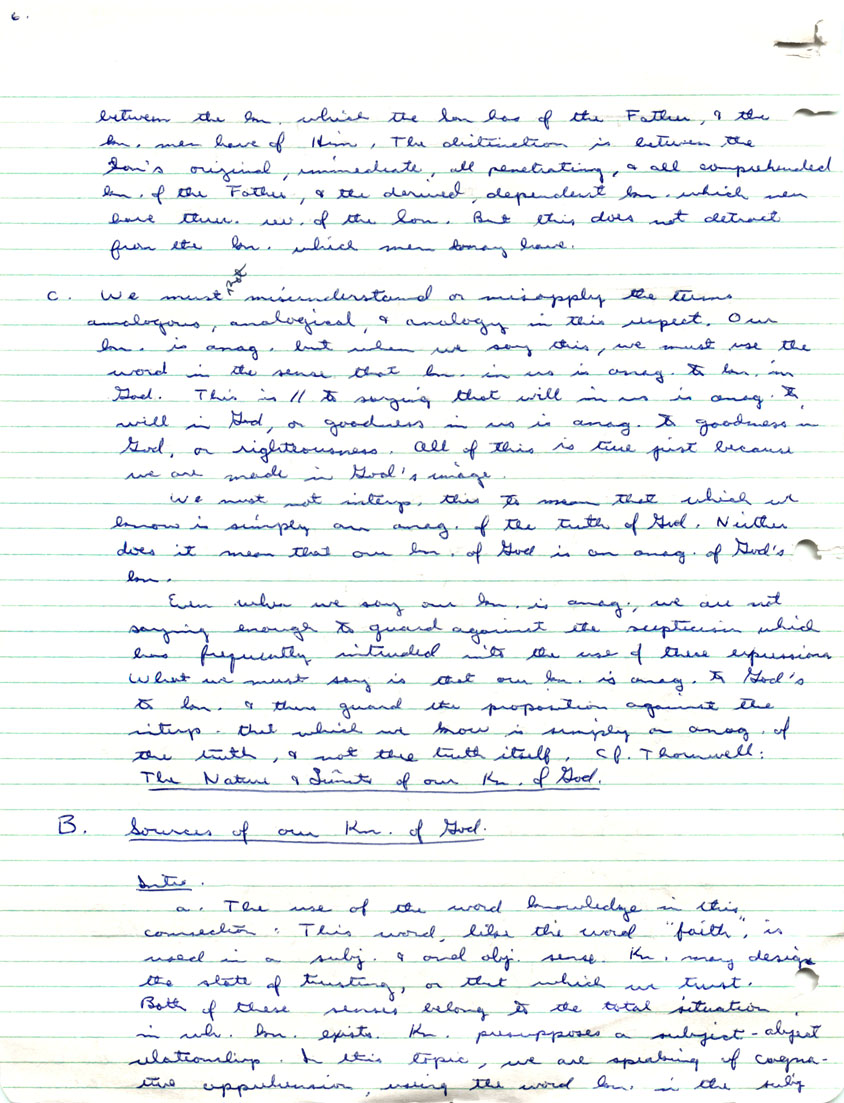 6.
between the kn. which the Son has of the Father, & the
kn. men have of Him. The distinction is between the
Son's original, immediate, all penetrating, & all comprehended
kn. of the Father, & the derived, dependent kn. which men
have thru. rev. of the Son. But this does not detract
from the kn. which men may have.
c. We must not misunderstand or misapply the terms
analogous, analogical, & analogy in this respect. Our
kn. is anag. but when we say this, we must use the
word in the sense that kn. in us is anag. to kn. in
God. This is // to saying that will in us is anag. to
will in God, or goodness in us is anag. to goodness in
God, or righteousness. All of this is true just because
we are made in God's image.
We must not interp. this to mean that which we
know is simply an anag. of the truth of God. Neither
does it mean that our kn. of God is an anag. of God's
kn.
Even when we say our kn. is anag., we are not
saying enough to guard against the scepticism which
has frequently intruded into the use of these expressions
What we must say is that our kn. is anag. to God's
to kn. & then guard the proposition against the
interp. that which we know is simply an anag. of
the truth, & not the truth itself. Cf. Thornwell:
The Nature & Limits of our Kn. of God.
B. Sources of our Kn. of God.
Intro.
a. The use of the word knowledge in this
connection: This word, like the word "faith", is
used in a subj. & and obj. sense. Kn. may design
the state of trusting, or that which we trust.
Both of these senses belong to the total situation
in wh. kn. exists. Kn. presupposes a subject-object
relationship. In this topic, we are speaking of cogna-
tive apprehension, using the word kn. in the subj